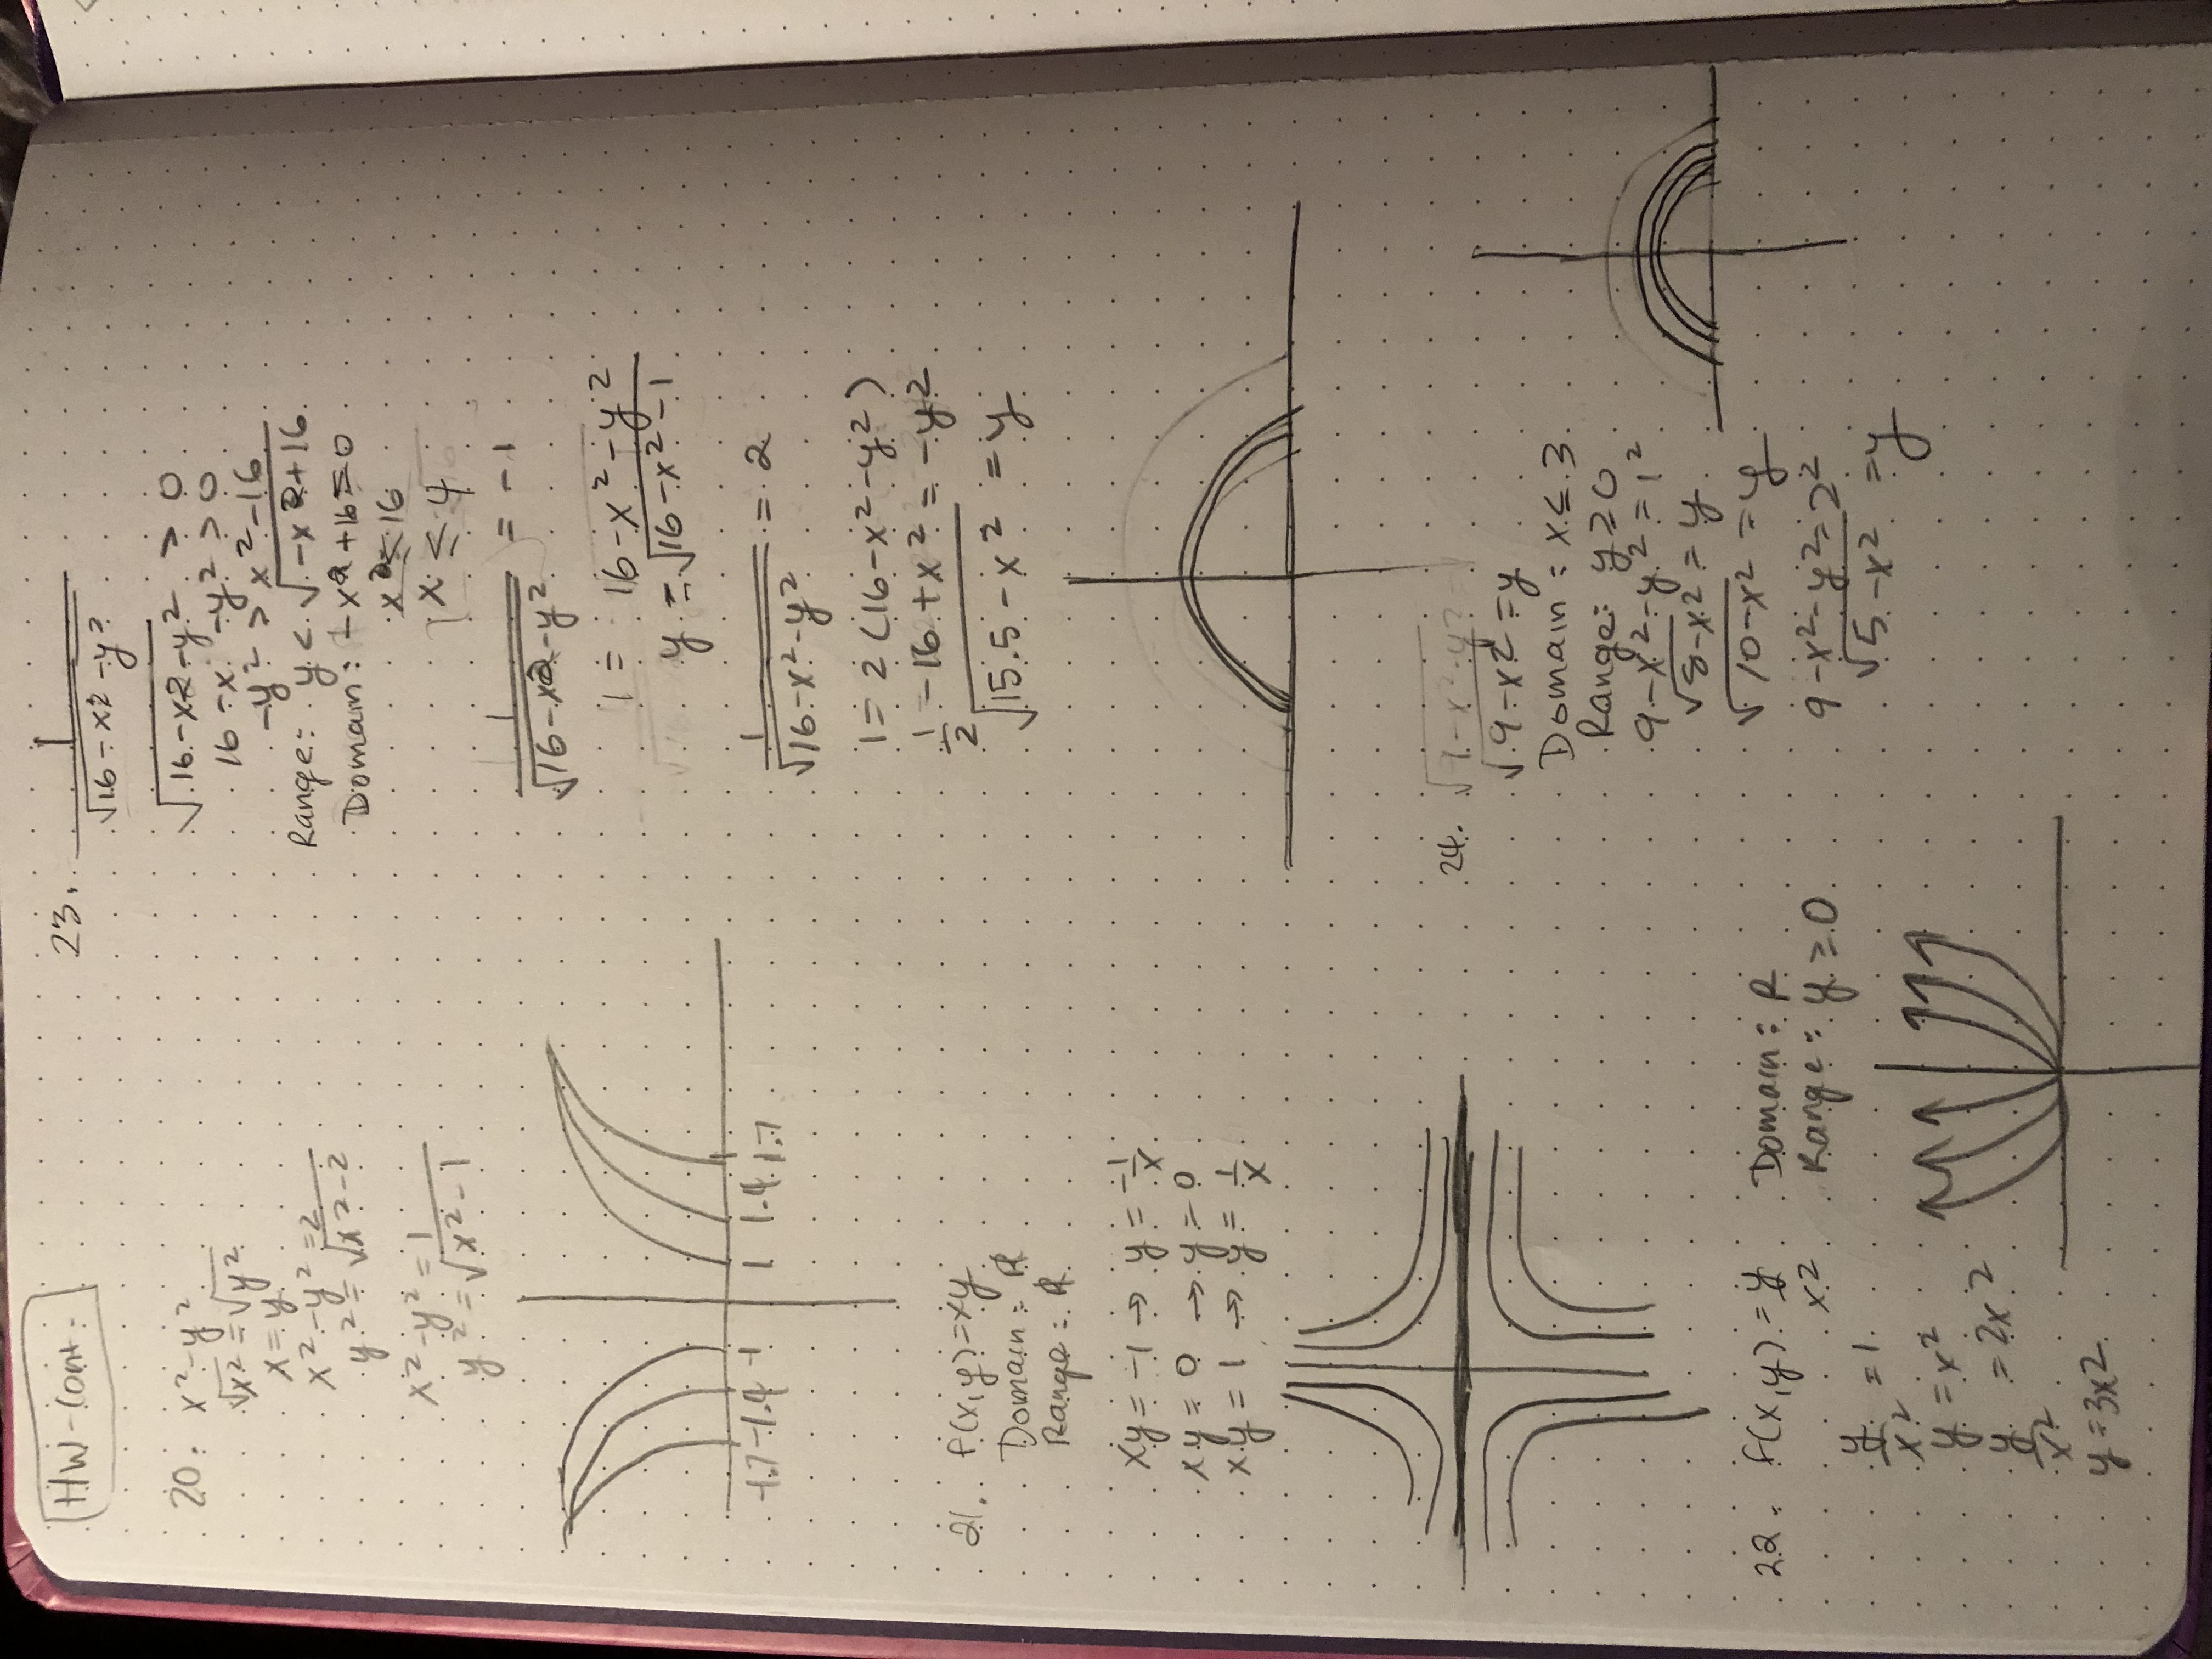 HW-Cont.
20. x²-y²
√x² = √y²
x = y
x²-y² = 2
y² = √x²-2
x²-y² = 1
y² = √x²-1
-1.7 -1.4 -1 1 1.4 1.7
21. f(x,y)=xy
Domain = R
Range = R
xy = -1 → y = -1/x
xy = 0 → y = 0
xy = 1 → y = 1/x
22. f(x,y) = y/x²
Domain: R
Range: y ≥ 0
y/x² = 1
y = x²
y/x² = 2x²
y = 3x2
23. 1/√16-x2-y²
√16-x2-y² > 0
16-x -y² > 0
-y² > x²-16
Range: y < √-x2+16
Domain: -x2+16 ≥ 0
x2 ≤ 16
x ≤ 4
1/√16-x2-y² = -1
1 = 16-x²-y²
y = √16-x²-1
1/√16-x²-y² = 2
1 = 2(16-x²-y²)
1/2 -16+x² = -y²
√15.5-x² = y
24. √9-x²-y²
√9-x² = y
Domain: x ≤ 3
Range: y ≥ 0
9-x²-y² = 1²
√8-x² = y
√10-x² = y
9-x²-y² = 2²
√5-x² = y